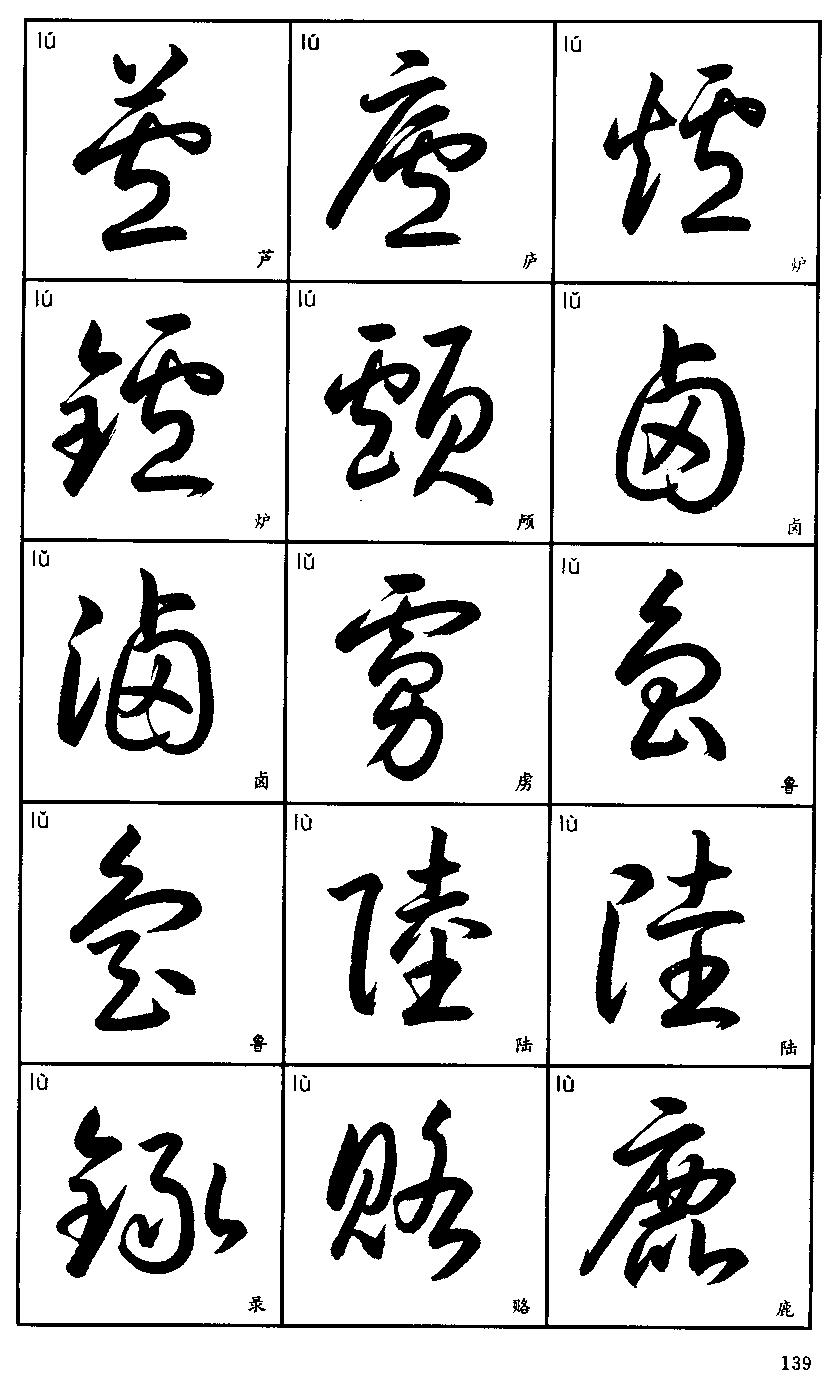 lú lú lú
蘆 廬 爐
芦 庐 炉
lú lú lǔ
鑪 顱 鹵
炉 颅 卤
lǔ lǔ lǔ
滷 虜 魯
卤 虏 鲁
lǔ lù lù
魯 陸 陸
鲁 陆 陆
lù lù lù
錄 賂 鹿
录 赂 鹿
139